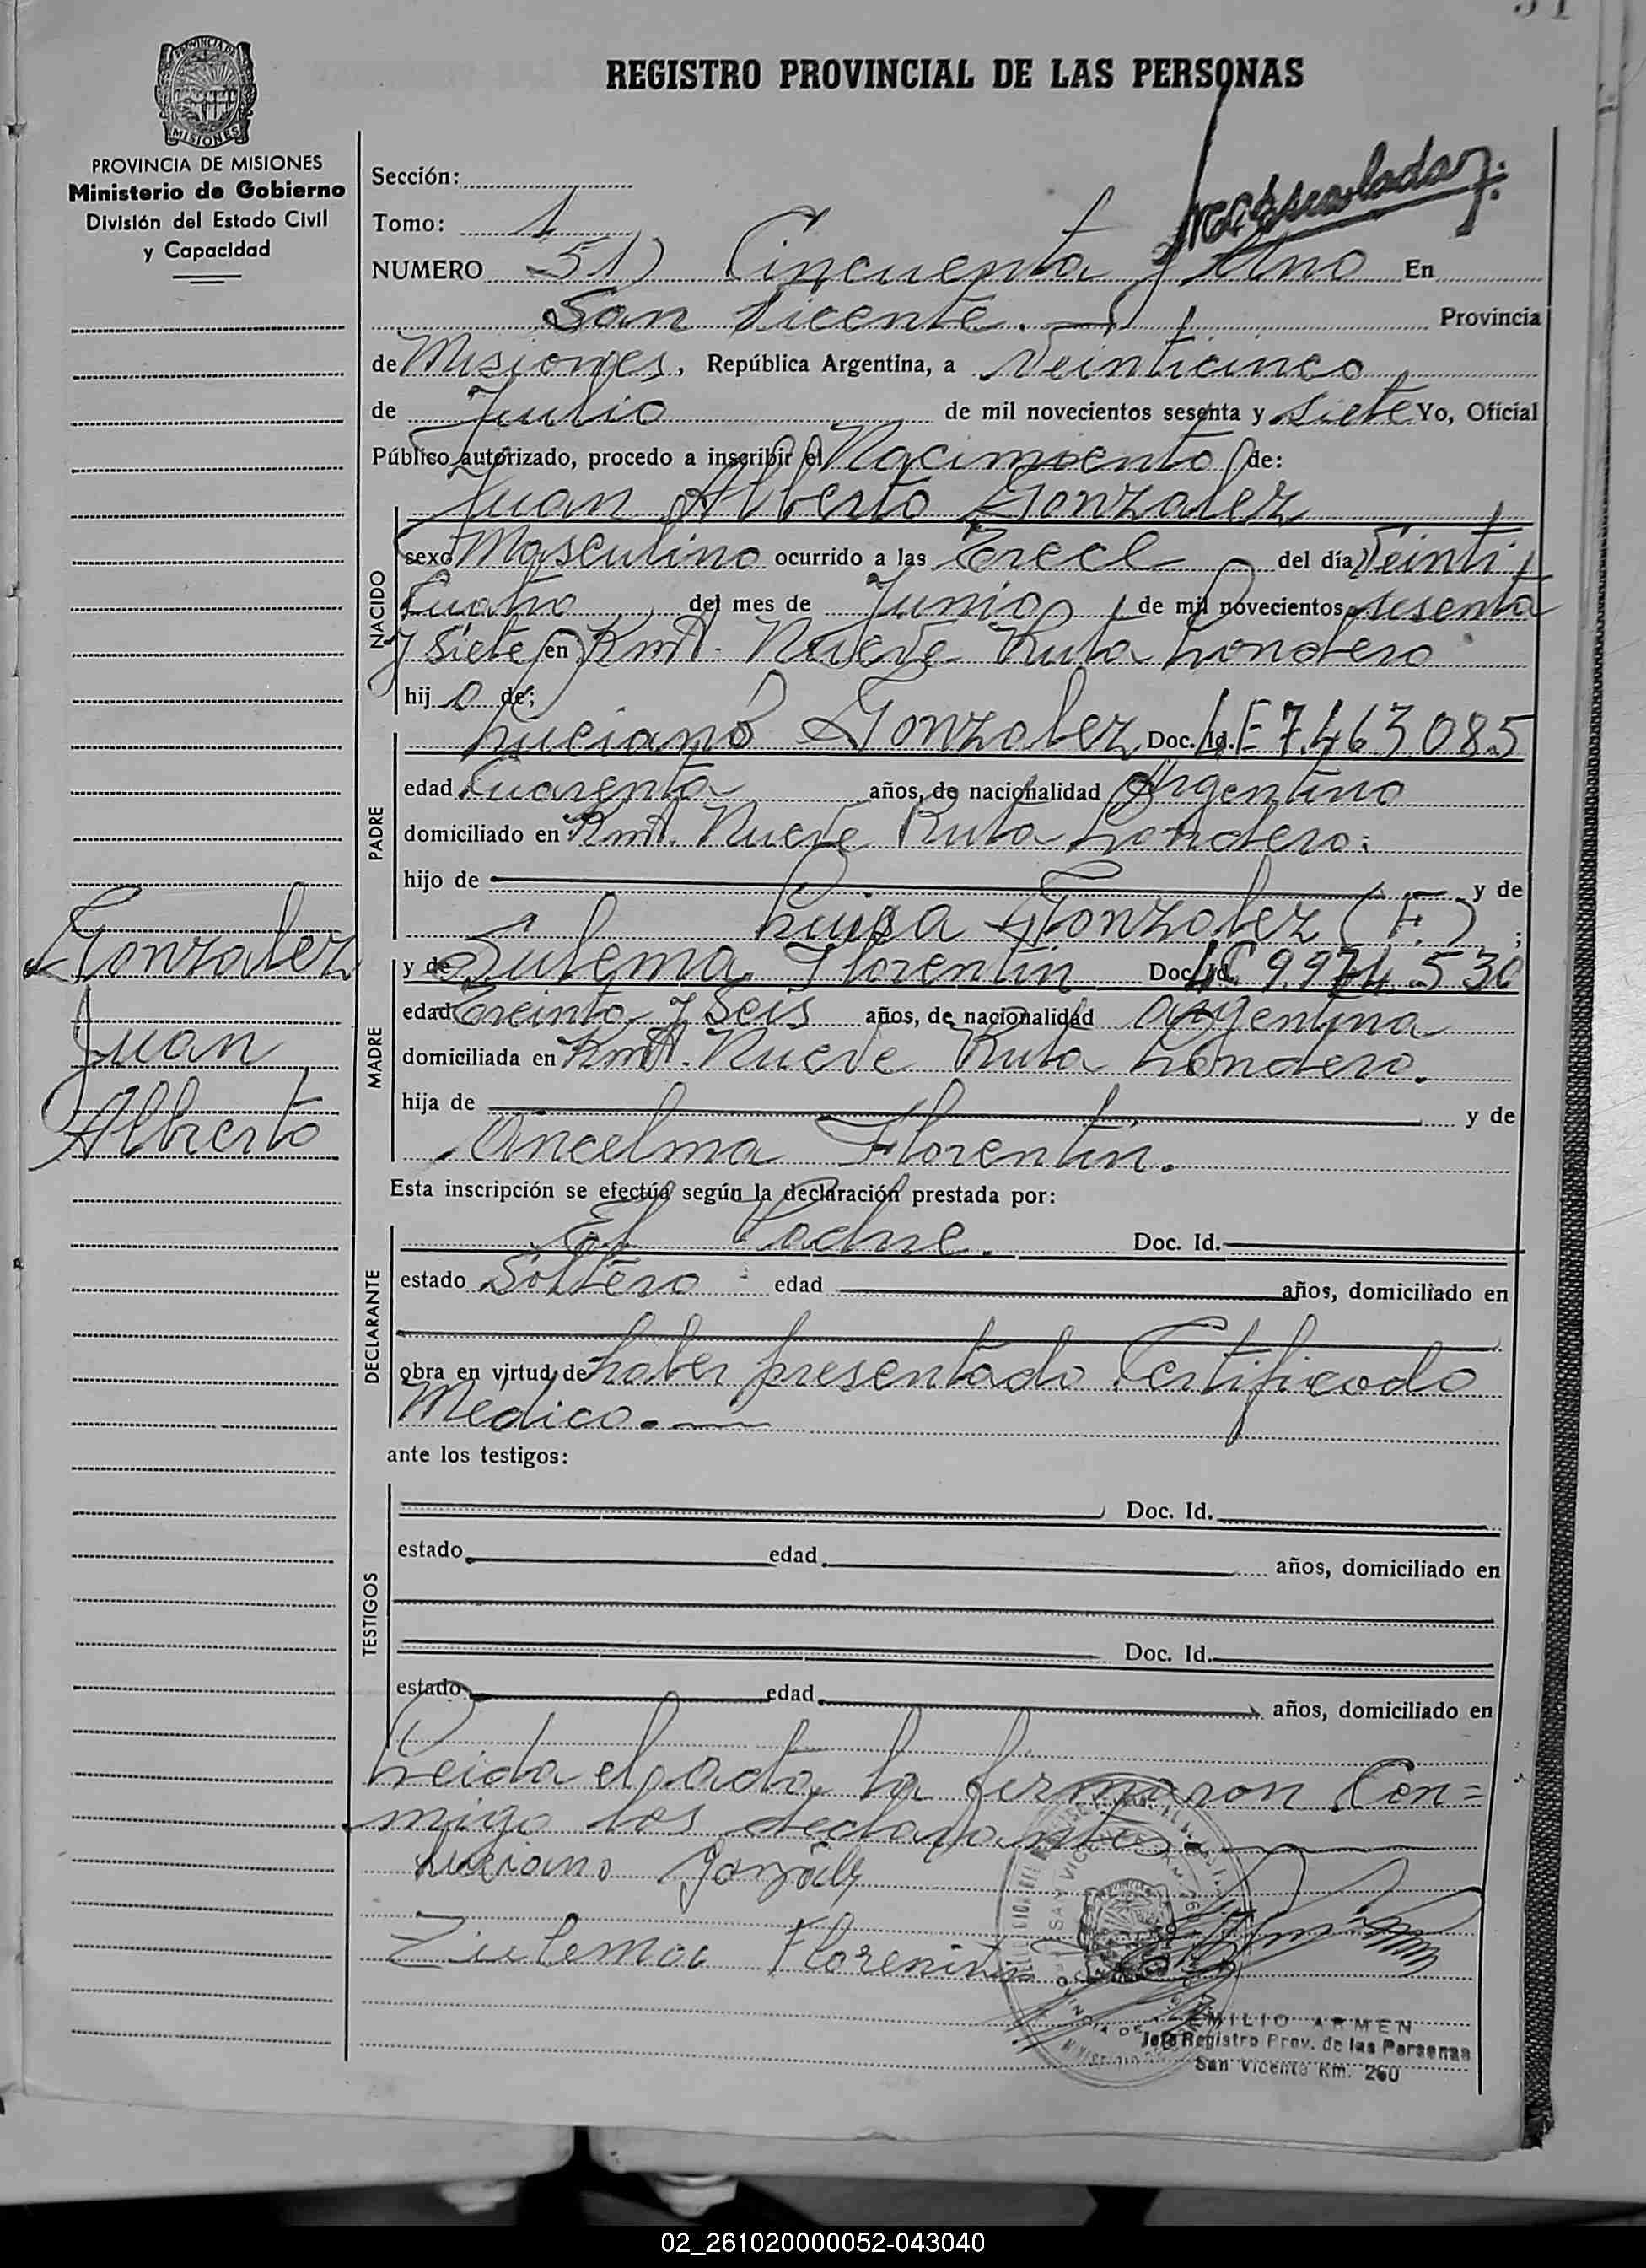 REGISTRO PROVINCIAL DE LAS PERSONAS
MISIONES
PROVINCIA DE MISIONES
Ministerio de Gobierno
División del Estado Civil
y Capacidad
Gonzalez
Juan
Alberto
Sección:
Tomo: 1
NUMERO 51) Cincuenta y Uno En
San Vicente. Provincia
de Misiones, República Argentina, a Veinticinco
de Julio de mil novecientos sesenta y siete Yo, Oficial
Público autorizado, procedo a inscribir el Nacimiento de:
Juan Alberto Gonzalez
NACIDO
sexo Masculino ocurrido a las Trece del día Veinti
Cuatro del mes de Junio de mil novecientos sesenta
y Siete en Kmt. Nueve Ruta Londero
hijo de;
Luciano Gonzalez Doc. Id. L.E 7.463.085
PADRE
edad Cuarenta años, de nacionalidad Argentino
domiciliado en Kmt. Nueve Ruta Londero.
hijo de y de
Luisa Gonzalez (F.) ;
y de Sulema Florentin Doc. Id. LC 9.974.530
MADRE
edad Treinta y Seis años, de nacionalidad argentina
domiciliada en Kmt. Nueve Ruta Londero.
hija de y de
Ancelma Florentin.
Esta inscripción se efectúa según la declaración prestada por:
El Padre. Doc. Id.
DECLARANTE
estado Soltero edad años, domiciliado en
obra en virtud de haber presentado Certificado
Medico.
ante los testigos:
TESTIGOS
Doc. Id.
estado edad años, domiciliado en
Doc. Id.
estado edad años, domiciliado en
Leida el acta, la firmaron Con=
migo los declarantes
Luciano Gonzalez
Zulema Florentin
EMILIO ARMEN
Jefe Registro Prov. de las Personas
San Vicente Km. 260
02_261020000052-043040